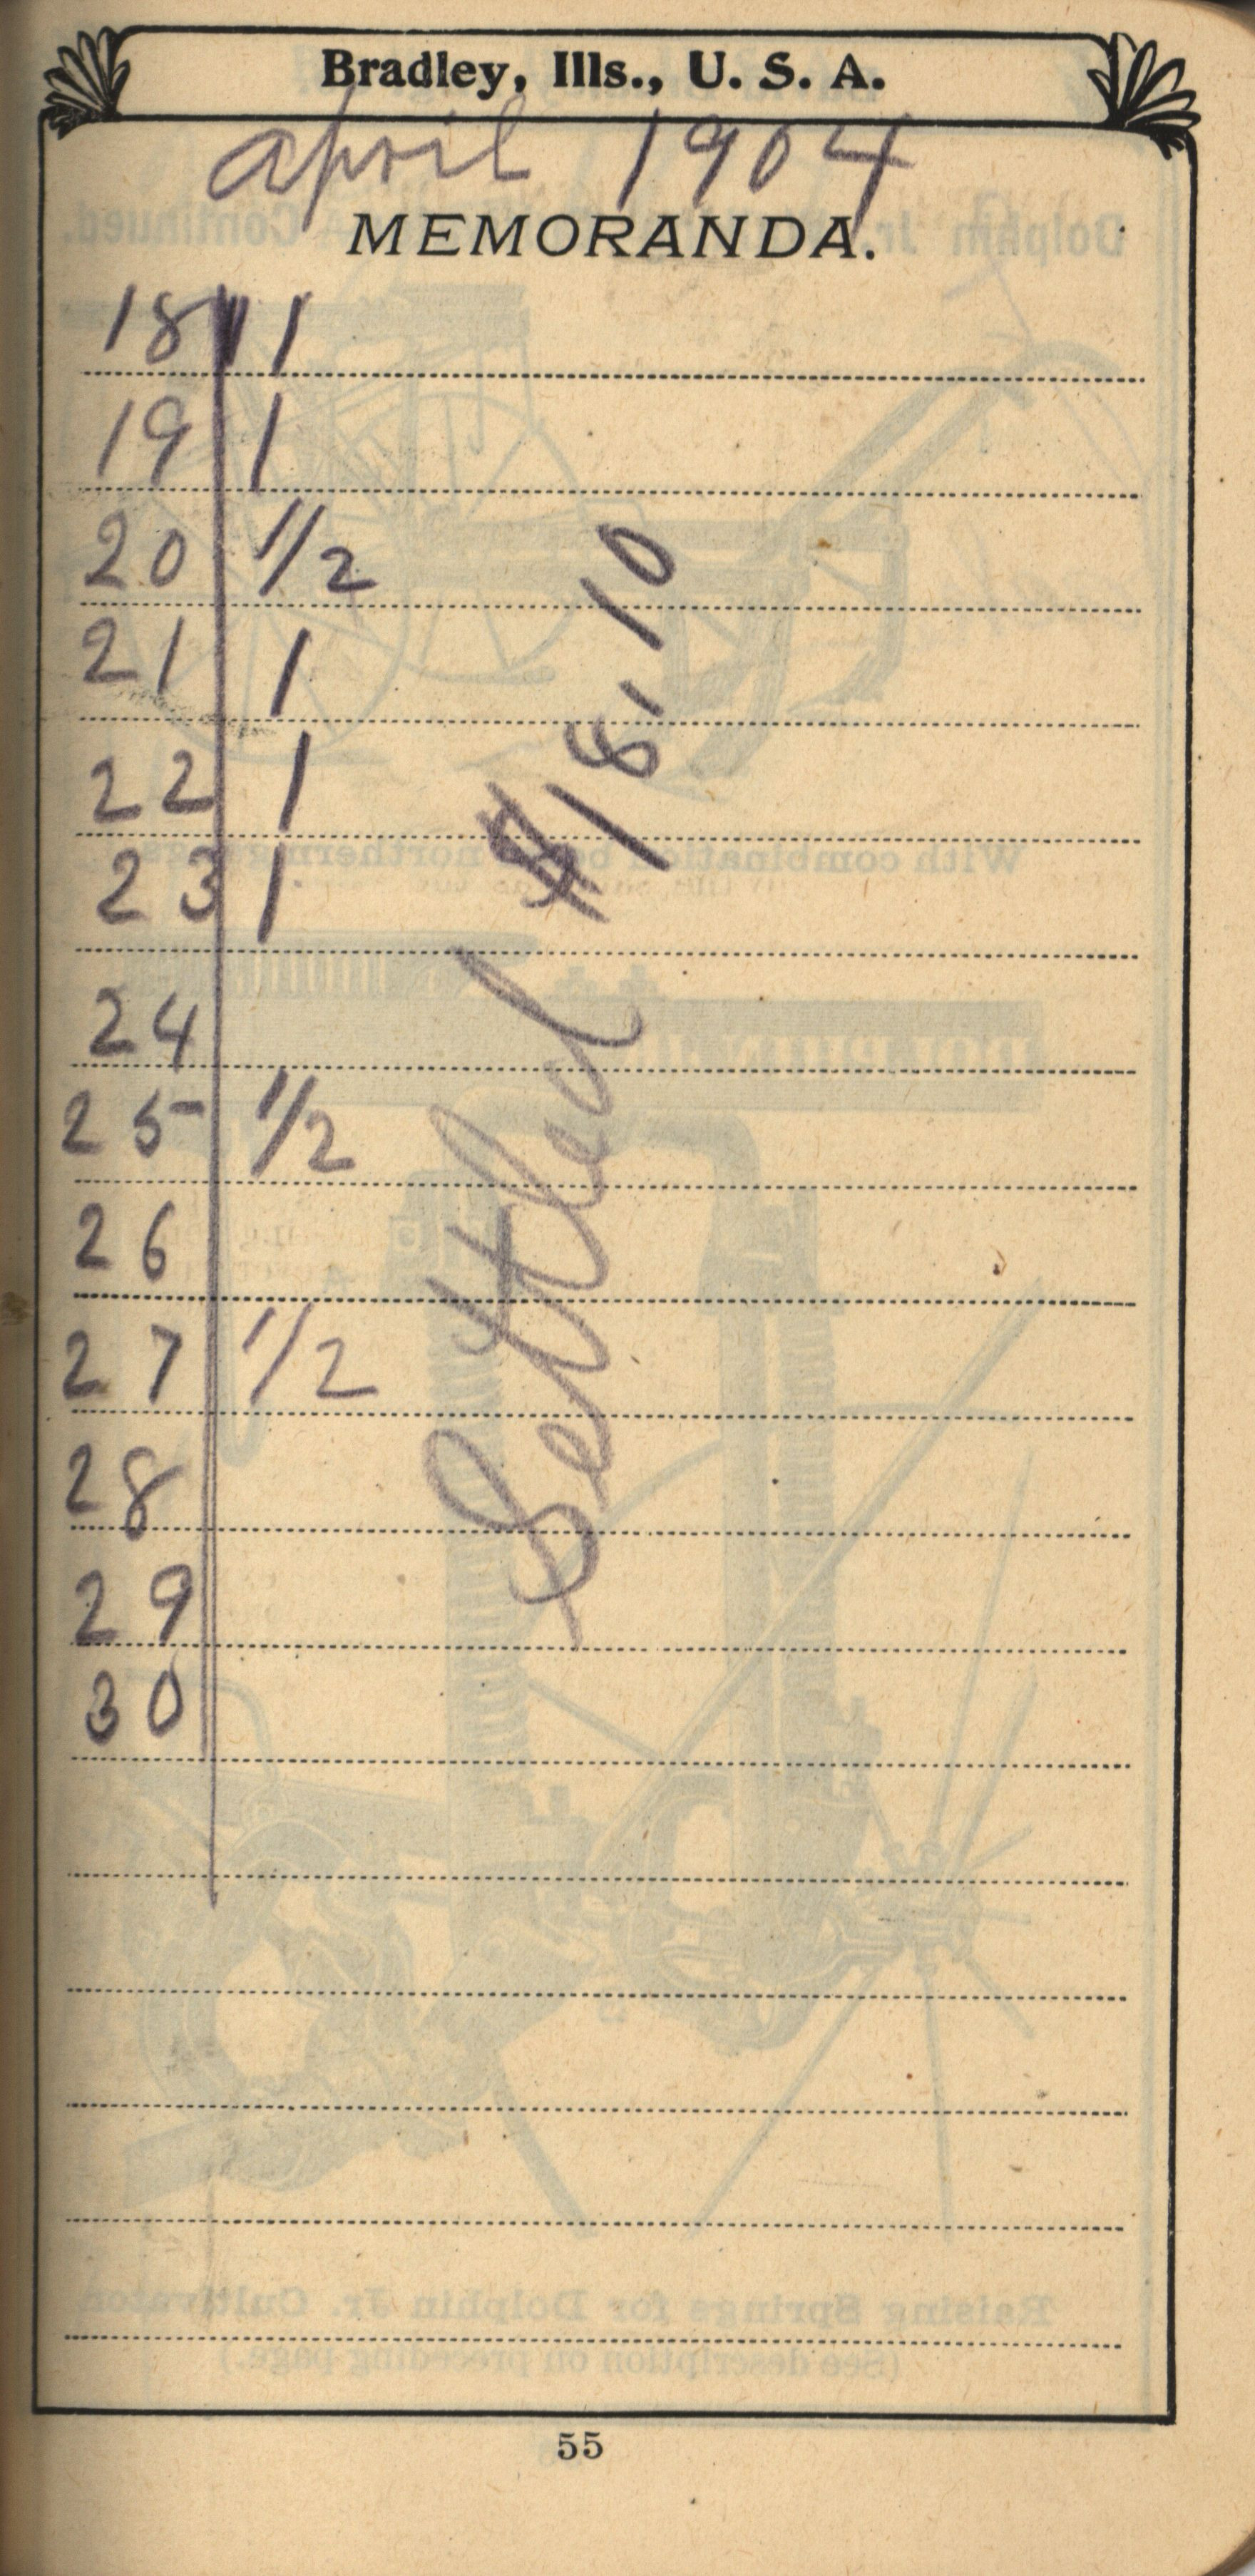 Bradley, Ills., U. S. A.
April 1904
MEMORANDA.
18 1
19 1
20 1/2
21 1
22 1
23 1
24
25 1/2
26
27 1/2
28
29
30
Settled $18,10
55